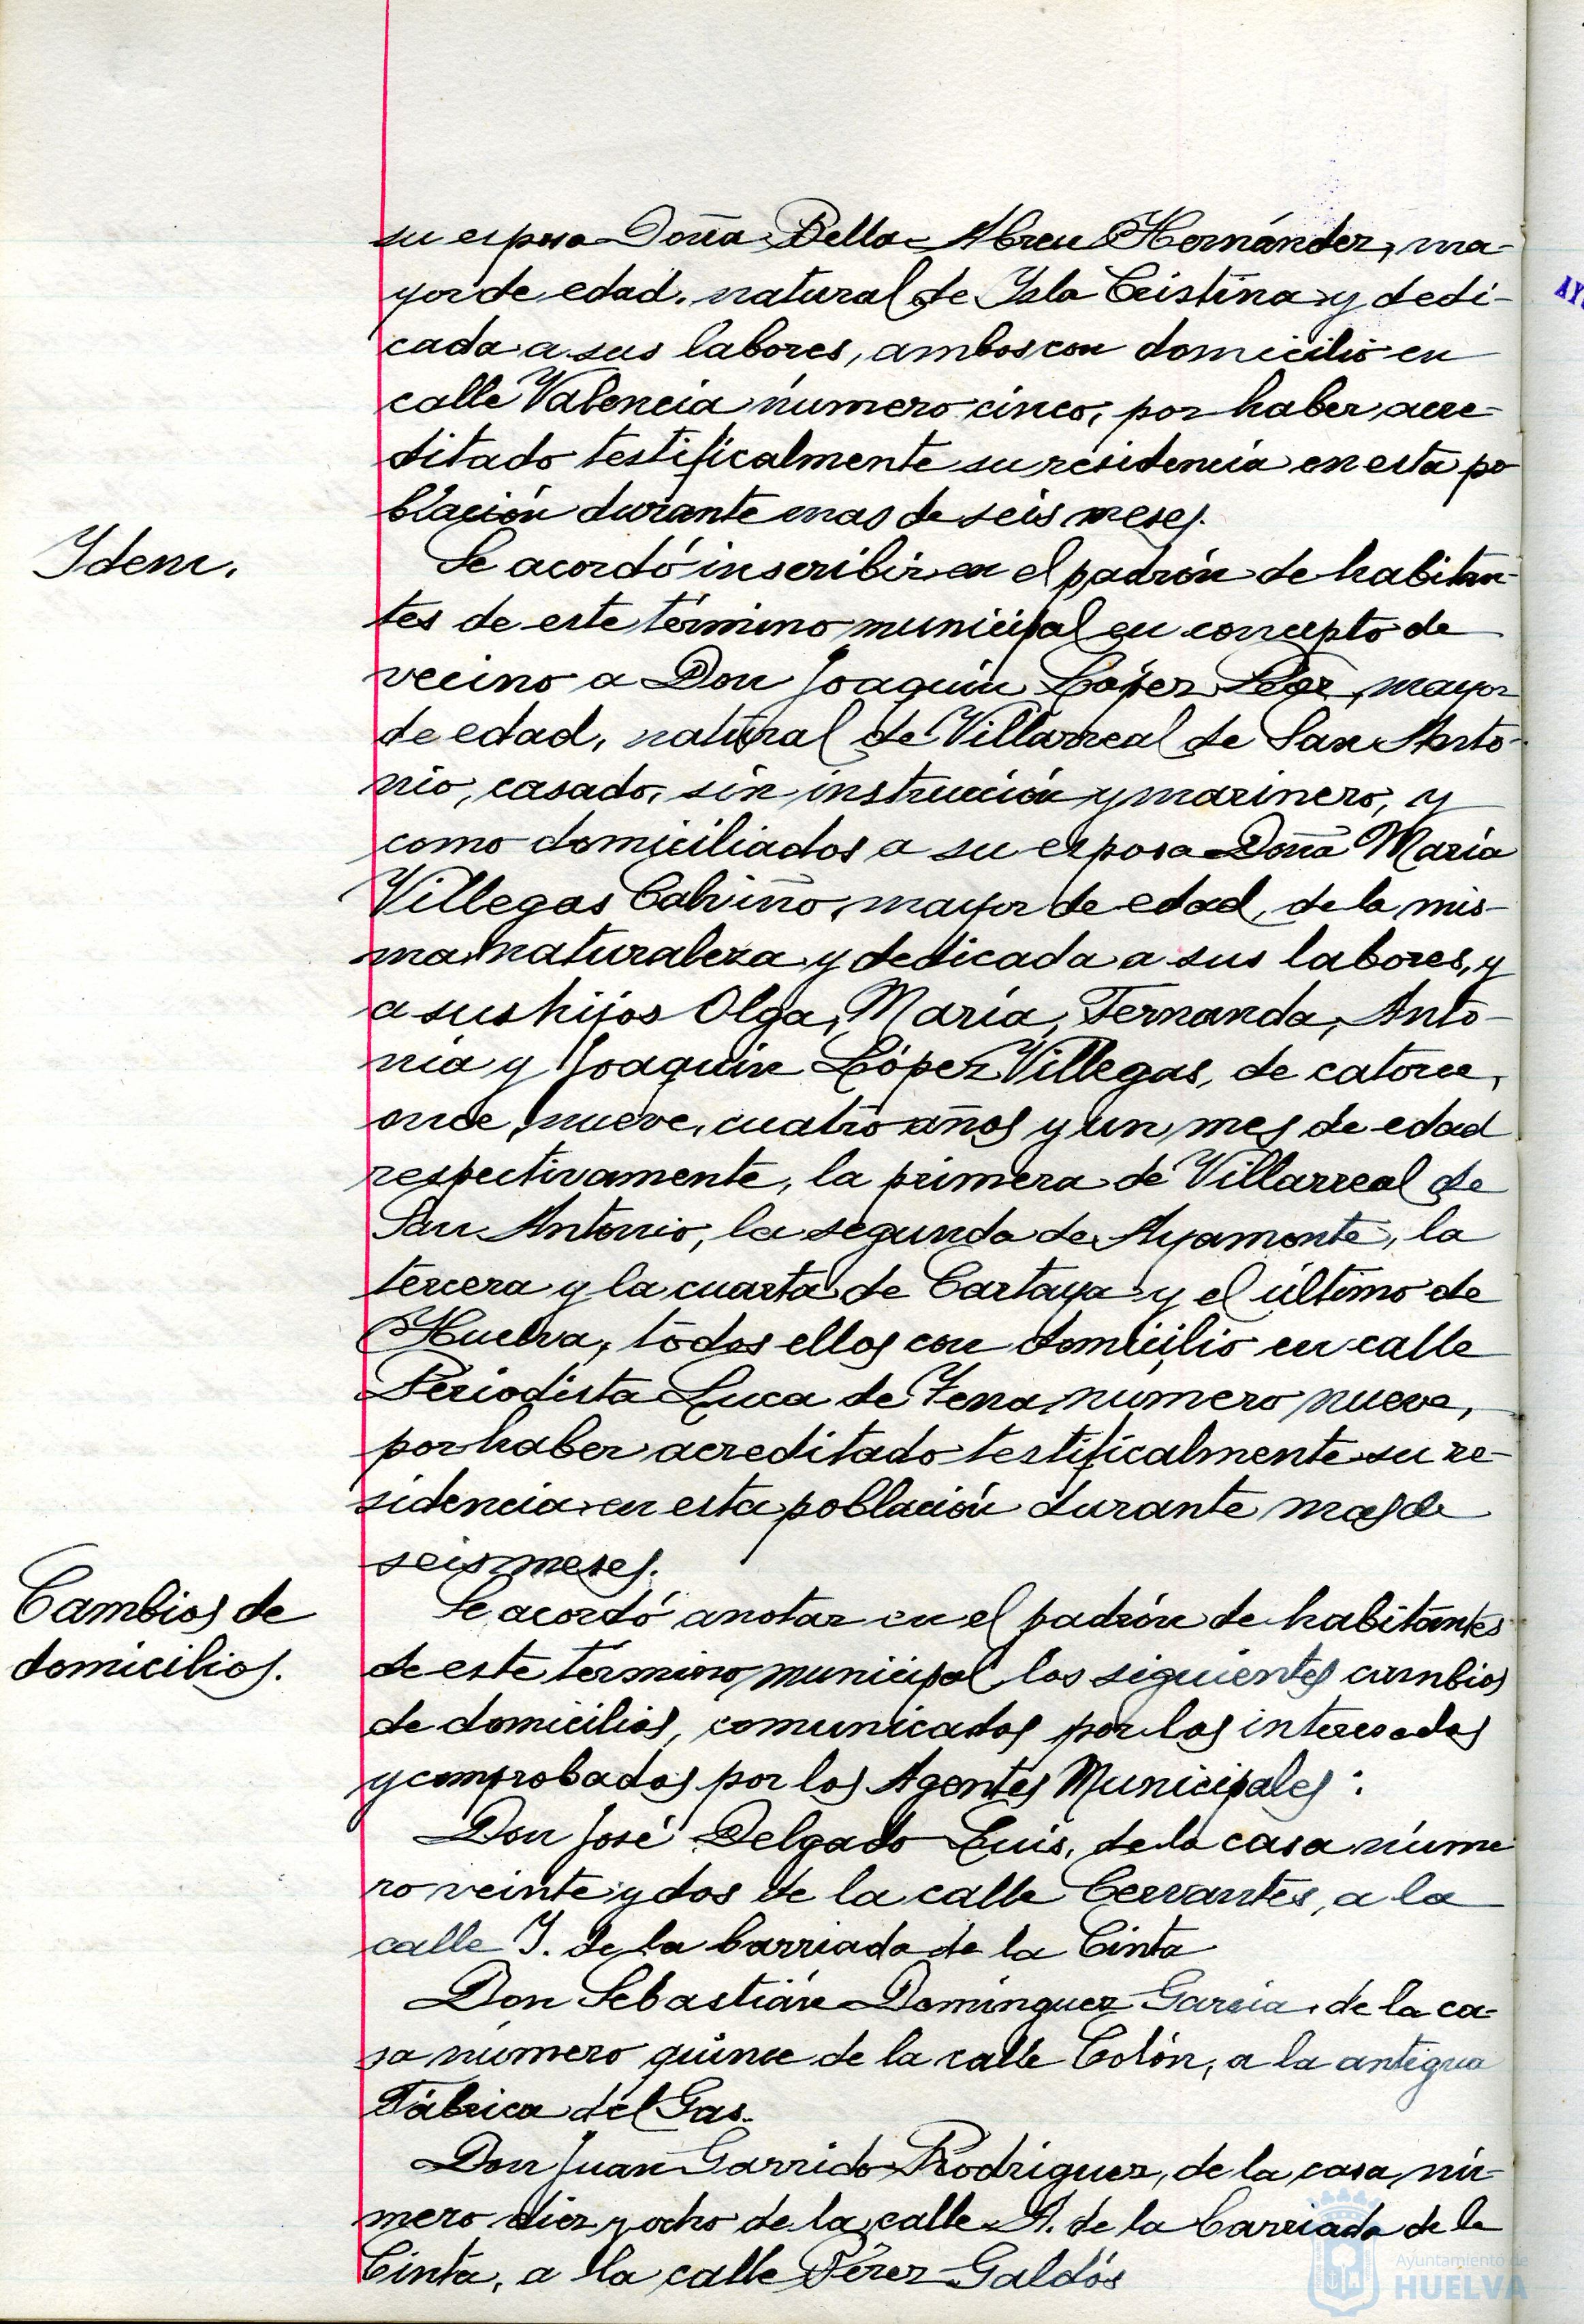 su esposa Doña Bella Abreu Hernández, ma-
yor de edad, natural de Isla Cristina y dedi-
cada a sus labores, ambos con domicilio en
calle Valencia número cinco, por haber acre-
ditado testificalmente su residencia en esta po
blación durante mas de seis meses.
Idem.
Se acordó inscribir en el padrón de habitan-
tes de este término municipal en concepto de
vecino a Don Joaquín López, mayor
de edad, natural de Villarreal de San Anto-
nio, casado, sin instrucción y marinero, y
como domiciliados a su esposa Doña María
Villegas Calviño, mayor de edad, de la mis-
ma naturaleza y dedicada a sus labores, y
a sus hijos Olga, María, Fernanda, Anto-
nia y Joaquín López Villegas, de catorce,
once, nueve, cuatro años y un mes de edad
respectivamente, la primera de Villarreal de
San Antonio, la segunda de Ayamonte, la
tercera y la cuarta de Cartaya y el último de
Huelva, todos ellos con domicilio en calle
Periodista Luca de Tena número nueve,
por haber acreditado testificalmente su re-
sidencia en esta población durante mas de
seis meses.
Cambios de
domicilios.
Se acordó anotar en el padrón de habitantes
de este término municipal los siguientes cambios
de domicilios, comunicados por los interesados
y comprobados por los Agentes Municipales:
Don José Delgado Luis, de la casa núme
ro veinte y dos de la calle Cervantes, a la
calle J. de la barriada de la Cinta
Don Sebastián Domínguez García, de la ca-
sa número quince de la calle Colón, a la antigua
Fábrica del Gas.
Don Juan Garrido Rodríguez, de la casa nú-
mero diez y ocho de la calle A. de la barriada de la
Cinta, a la calle Pérez Galdós
Ayuntamiento de
HUELVA